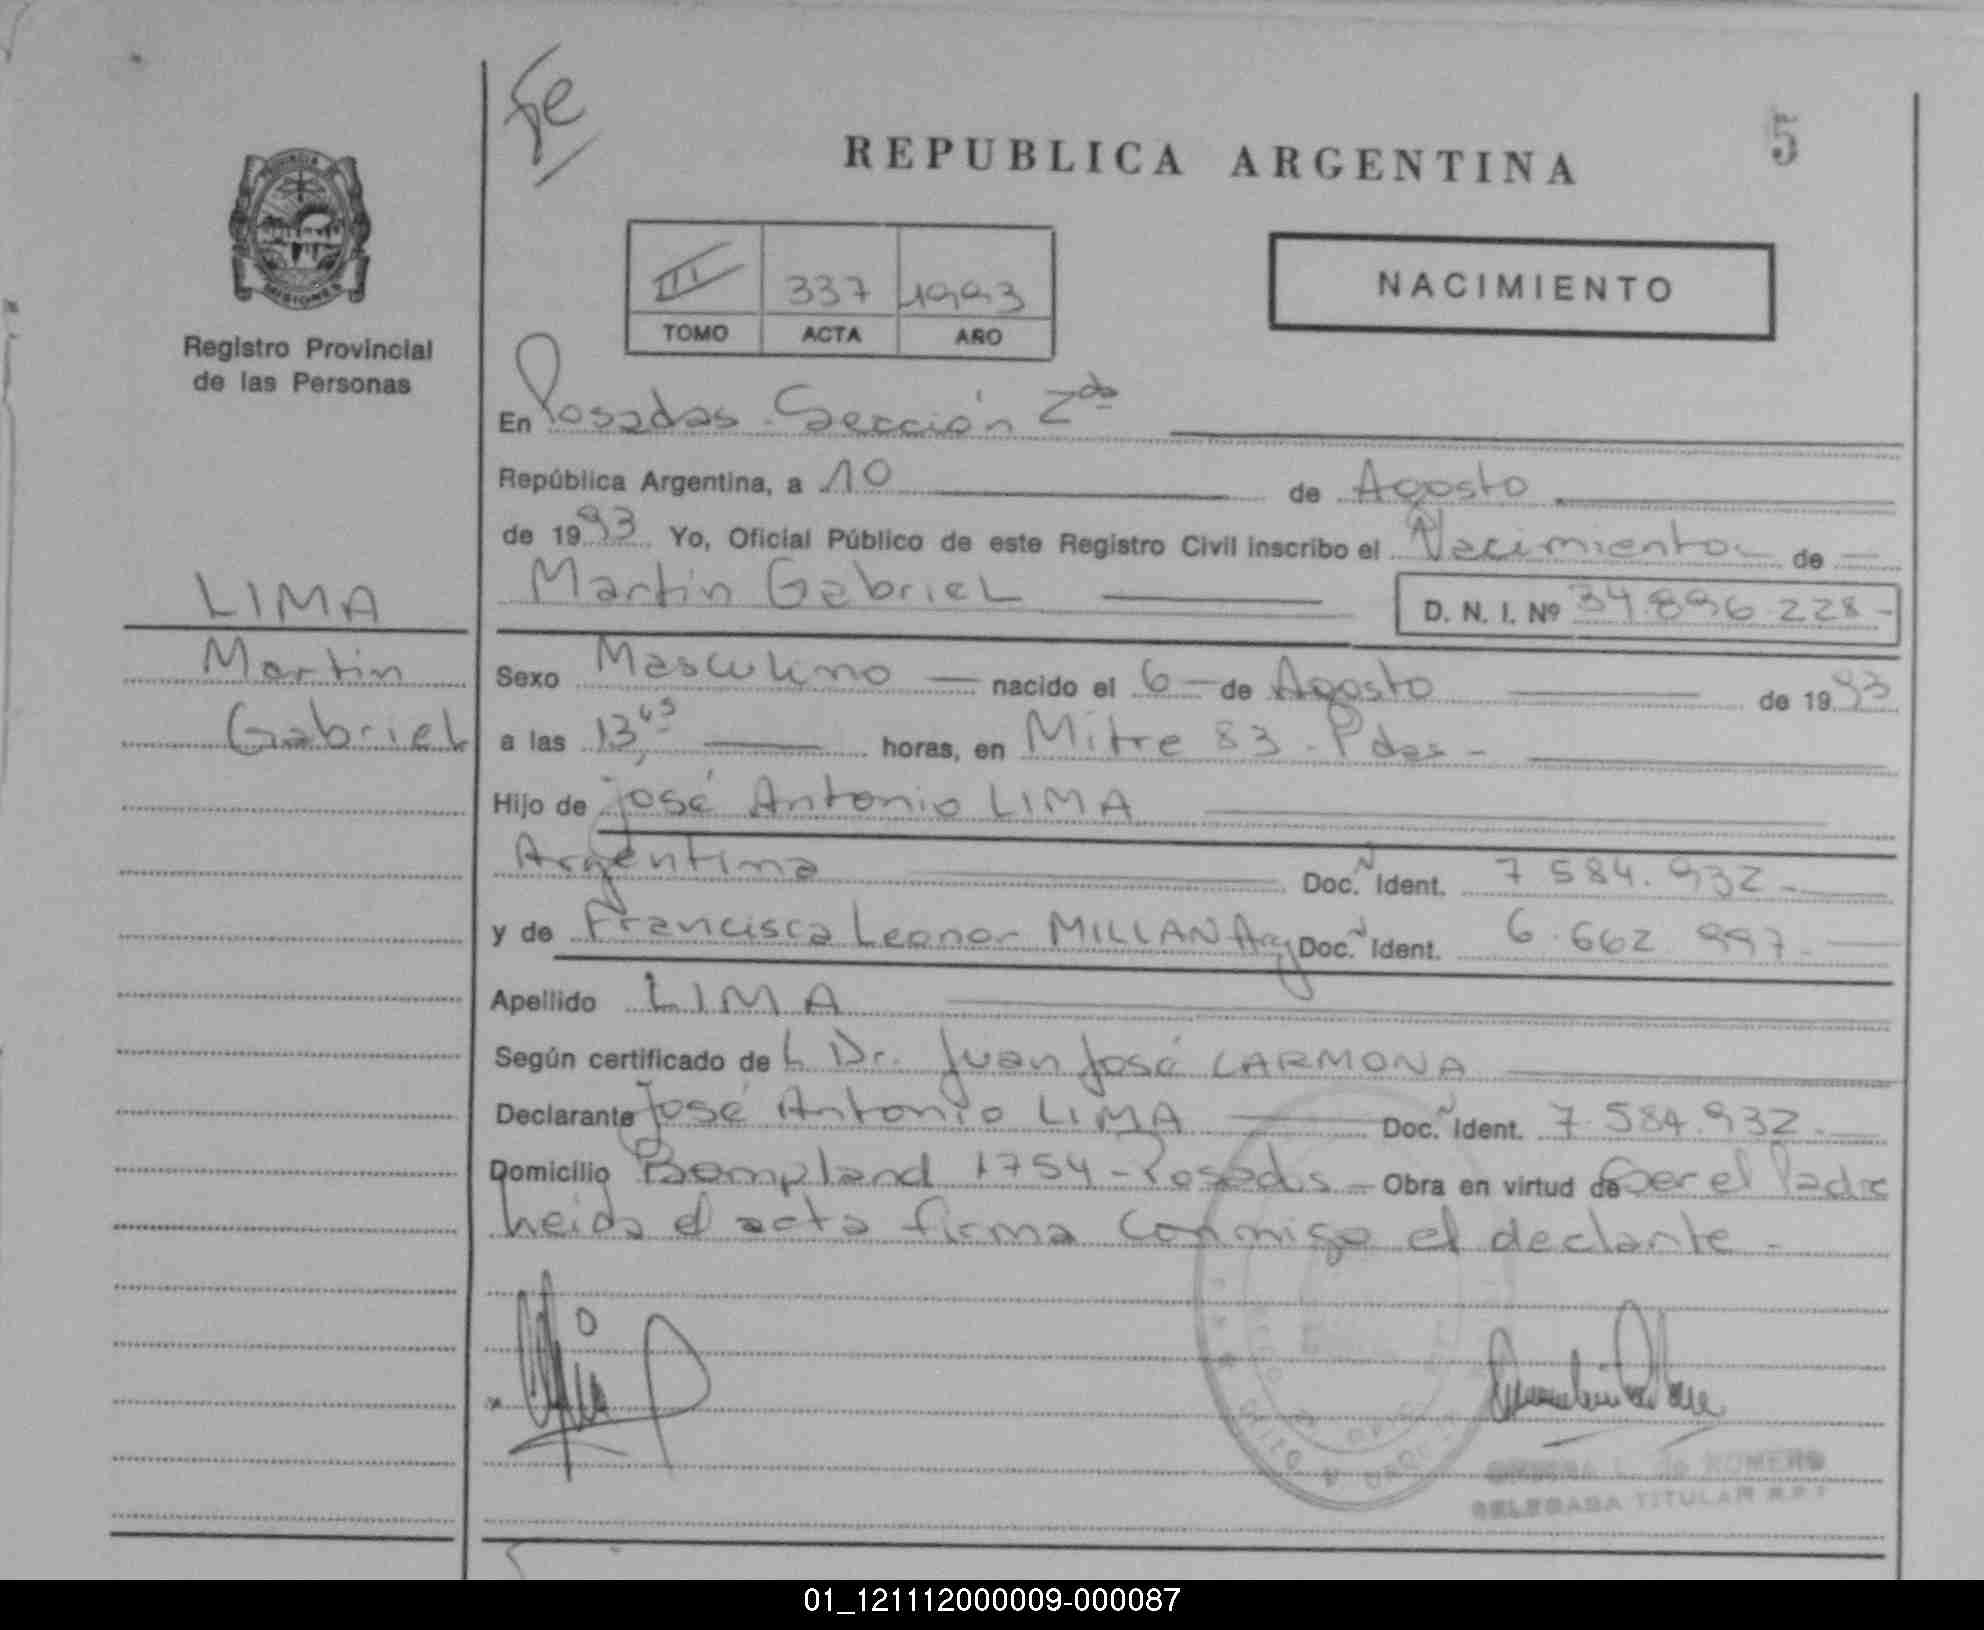 Fe
5
REPUBLICA ARGENTINA
PROVINCIA
MISIONES
Registro Provincial
de las Personas
III 337 1993
TOMO ACTA AÑO
NACIMIENTO
En Posadas Sección 2da
República Argentina, a 10 de Agosto
de 1993 Yo, Oficial Público de este Registro Civil inscribo el Nacimiento de
Martin Gabriel D. N. I. Nº 34.896.228-
LIMA
Martin
Gabriel
Sexo Masculino nacido el 6 de Agosto de 1993
a las 13,45 horas, en Mitre 83 - Pdas -
Hijo de José Antonio LIMA
Argentina Doc. Ident. 7 584.932-
y de Francisca Leonor MILLAN Arg Doc. Ident. 6.662 997-
Apellido LIMA
Según certificado del Dr. Juan José CARMONA
Declarante José Antonio LIMA Doc. Ident. 7.584.932-
Domicilio Bompland 1754 - Posadas - Obra en virtud de Ser el Padre
heida el acta firma conmigo el declante -
L. de ROMERO
DELEGADA TITULAR R.P.
01_121112000009-000087